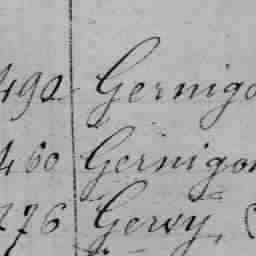 492 Gernigo
460 Gernigon
276 Gervy, (